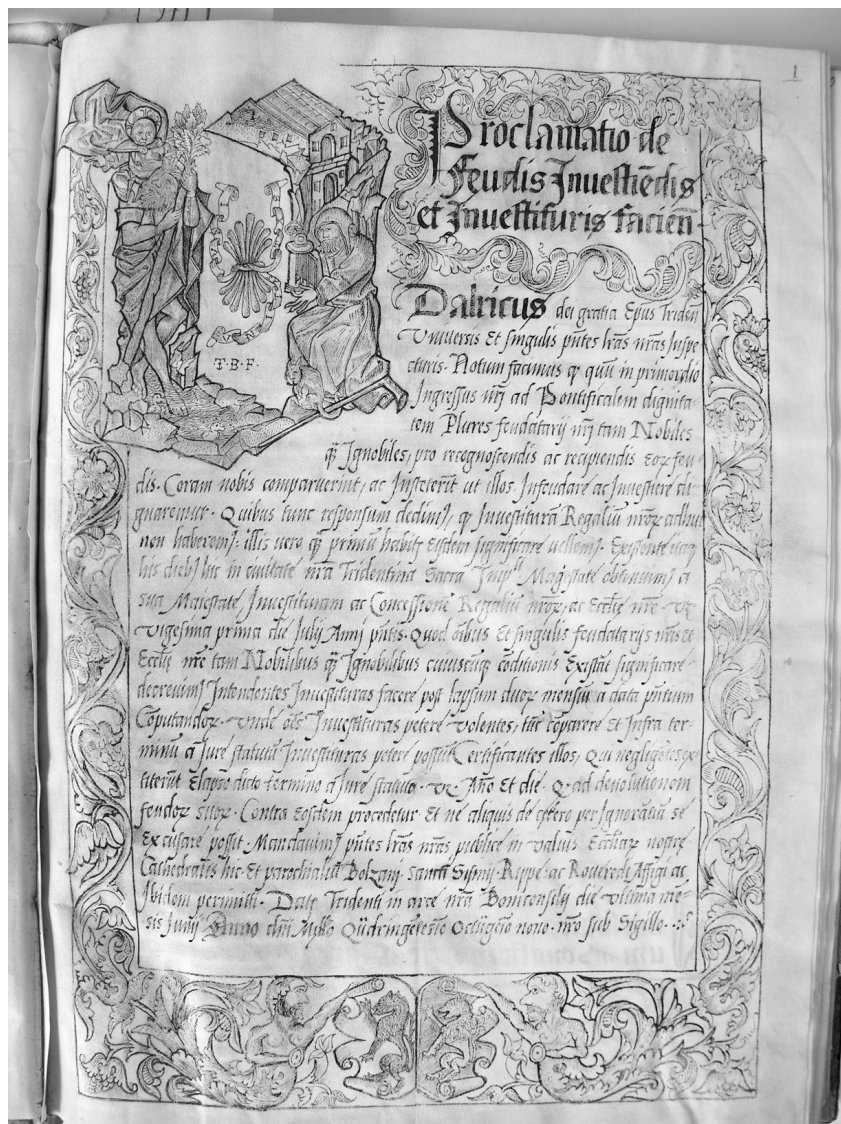 1
Proclamatio de
Feudis Inuestiẽdis
et Inuestituris faciẽn̄.
T·B·F·
Dalricus dei gratia Ep̃us Triden
Vniuersis Et singulis p̃ntes lr̃as nr̃as Inspe
cturis. Notum facimus q̨ quũ in primordio
Ingressus nr̃j ad Pontificalem dignita
tem Plures feudatarij nr̃j tam Nobiles
q̃ Ignobiles, pro recognoscendis ac recipiendis eoꝝ feu
dis. Coram nobis comparuerint, ac Institerĩt ut illos Infeudare ac Inuestire di
gnaremur. Quibus tunc responsum dedimꝰ, q̨ Inuestiturã Regaliũ nr̃oꝝ adhuc
non haberemꝰ. illis uero q̃ primũ habitꝭ Eisdem significare uellemꝰ.
his diebꝰ hic in ciuitate nr̃a Tridentina Sacra Maiestate obtinuimꝰ a
sua Maiestate Inuestituram ac Concessione Regaliũ nr̃oꝝ, ac Eccl̃ie nr̃e
Vigesima prima die Julij Anni p̃ntis. Quod õibus Et singulis feudatarijs nr̃is Et
Eccl̃ie nr̃e tam Nobilibus q̃ Ignobilibus cuiuscũq̨ cõditionis Existãt significare
decreuimꝰ Intendentes Inuestituras facere post lapsum duoꝝ mensiũ a data p̃ntium
Cõputandoꝝ. Vnde oẽs Inuestituras petere Volentes, cõparere Et Infra ter
minũ a Jure statutũ Inuestituras petere possĩt Certificantes illos, Qui negligẽtes ex
titerũt Elapso dicto termino a Jure statuto. Vꝫ. Año Et die. Q̨ ad deuolutionem
feudoꝝ suoꝝ. Contra Eosdem procedetur. Et ne aliquis de cetero per Ignorãtiã se
Excusare possit. Mandauimꝰ p̃ntes lr̃as nr̃as publice in Valuis Eccl̃iaꝝ nostre
Cathedralis hic. Et parochialiũ Bolzanj. Sancti Sisinij. Rippe. ac Roueredi Affigi ac
Ibidem permitti. Dat̃ Tridenti in arce nr̃a Boniconsilij die Vltima mẽ
sis Junij Anno dñi Mill̃o Q̃dringẽtesĩo Octũgẽio nono. nr̃o sub Sigillo.